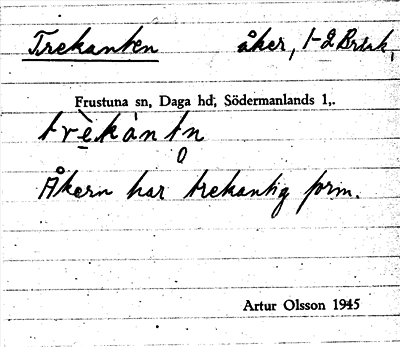 Trekanten åker, 1-2 Brisk,
Frustuna sn, Daga hd, Södermanlands l,.
trè̱kàntn̥
Åkern har trekantig form.
Artur Olsson 1945